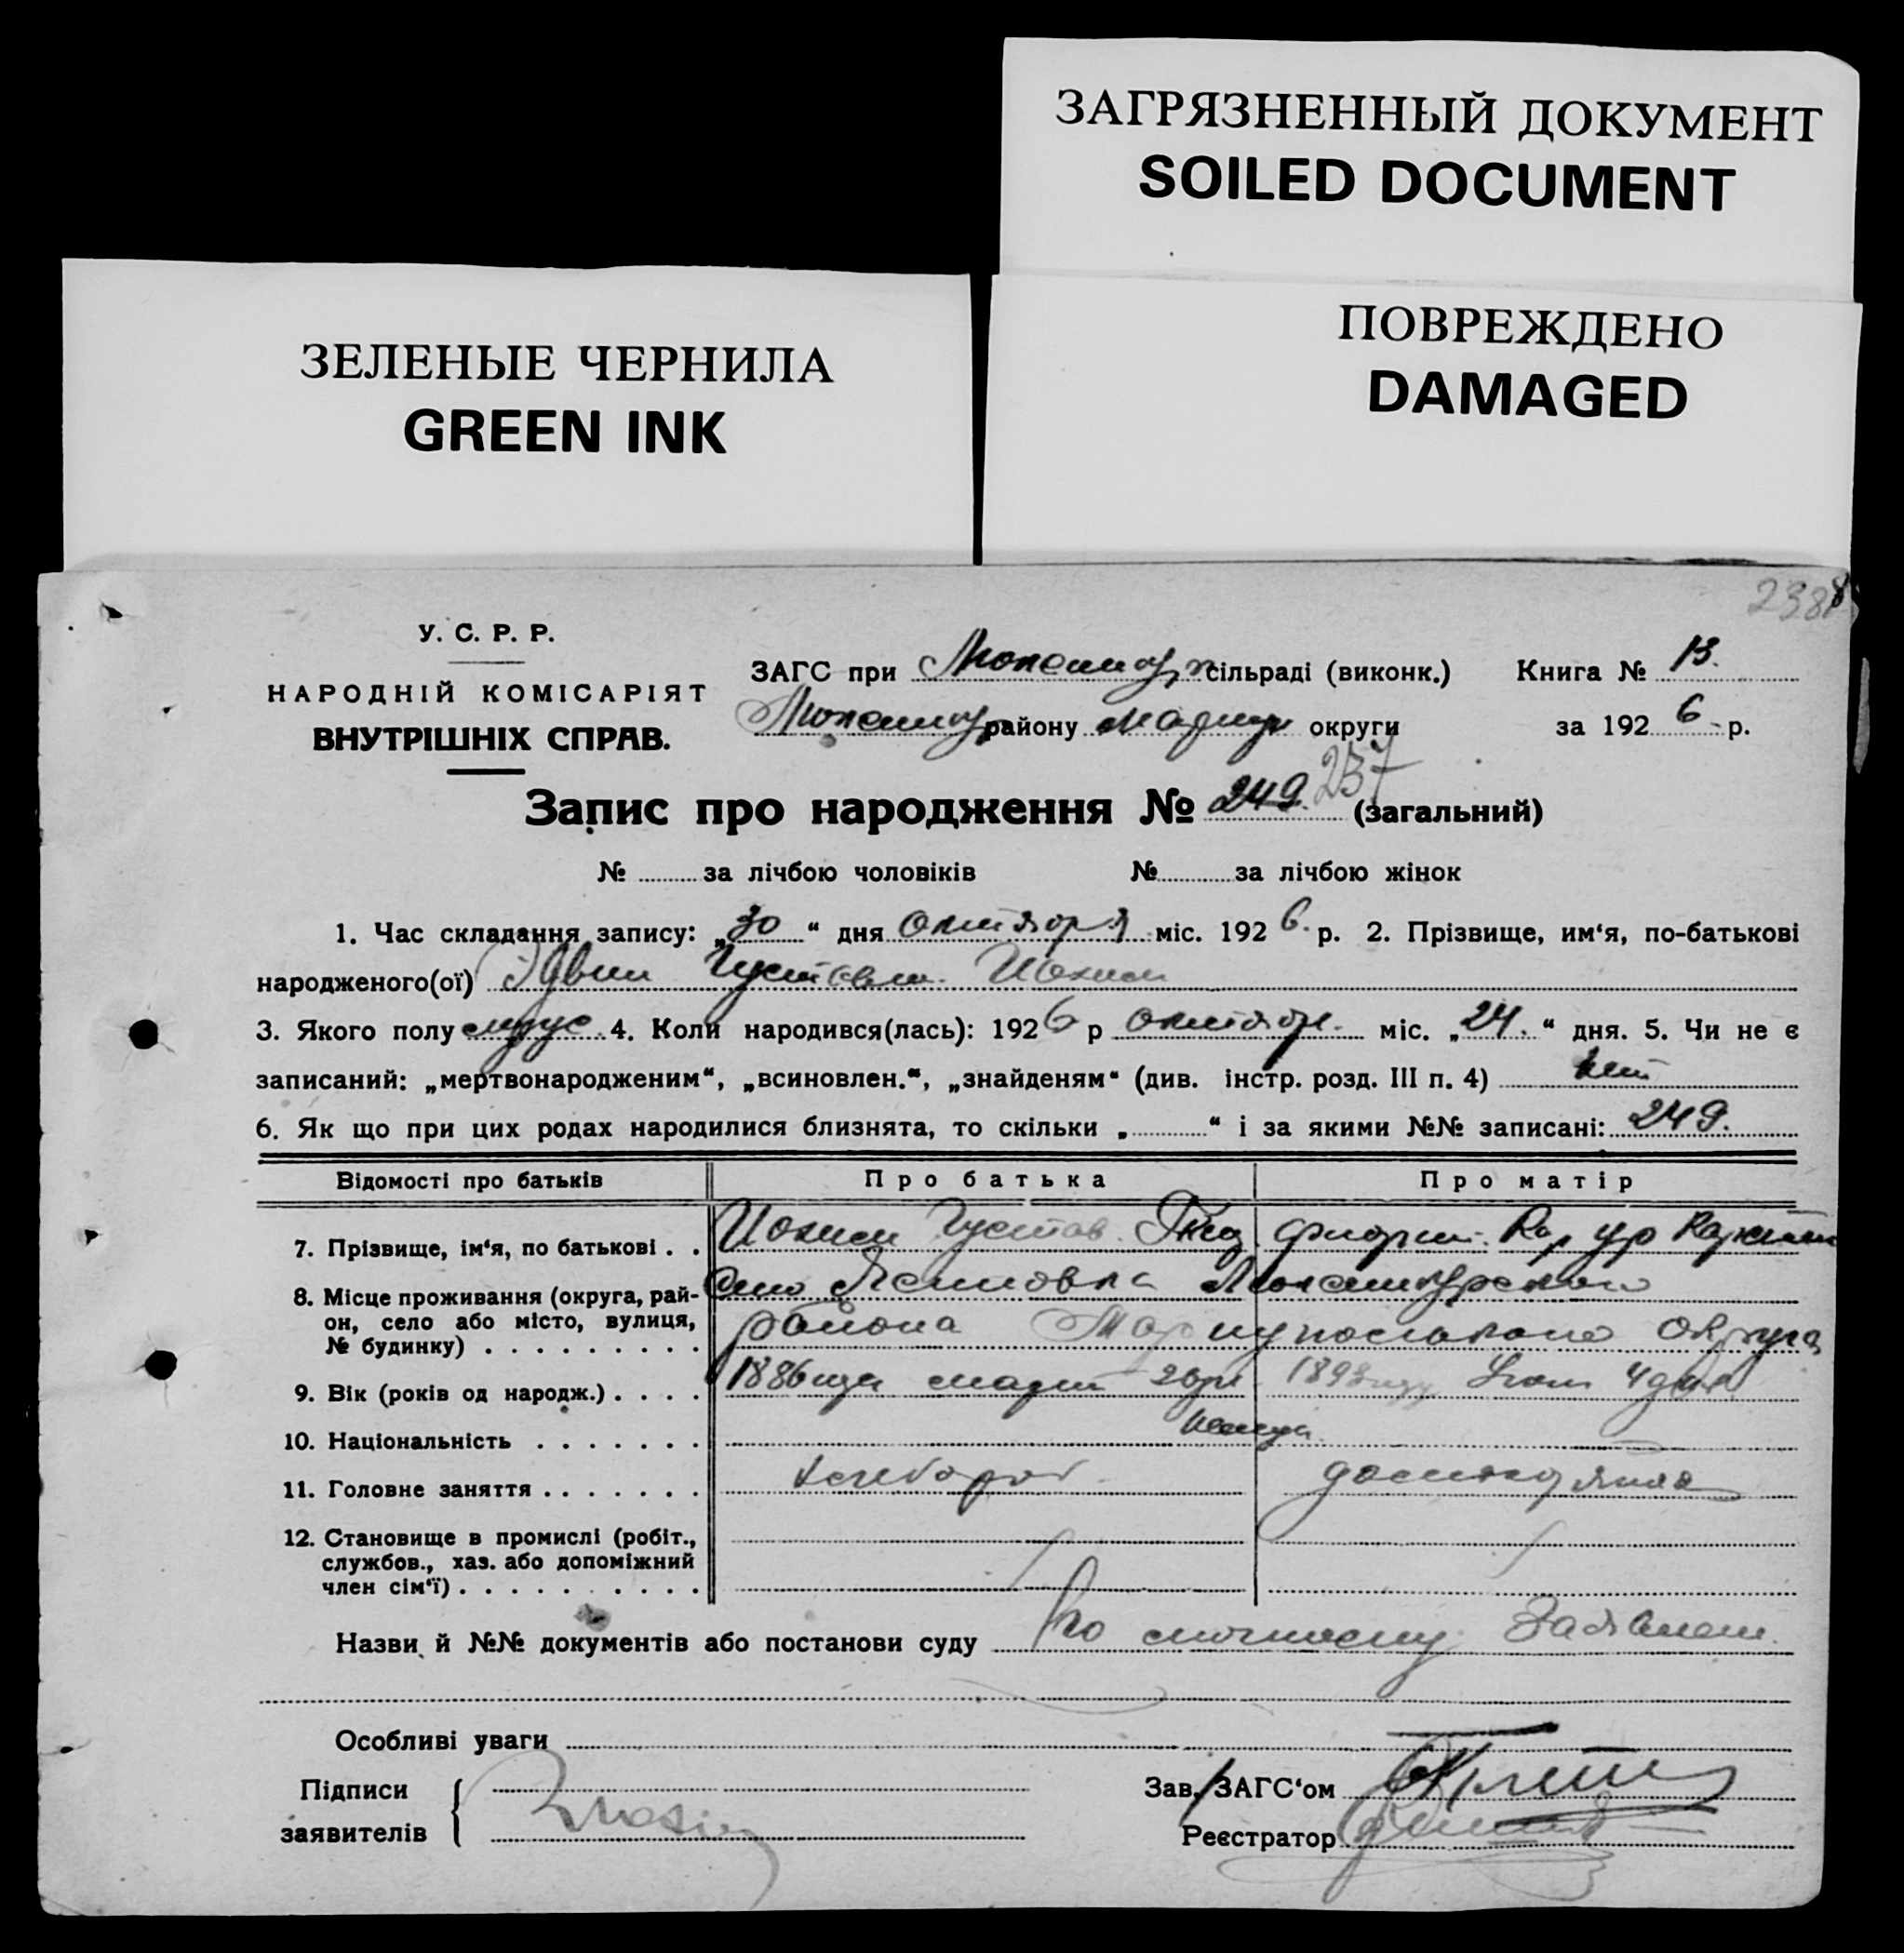 ЗАГРЯЗНЕННЫЙ ДОКУМЕНТ
SOILED DOCUMENT
ЗЕЛЕНЫЕ ЧЕРНИЛА
GREEN INK
ПОВРЕЖДЕНО
DAMAGED
238
У. С. Р. Р.
НАРОДНІЙ КОМІСАРІЯТ
ВНУТРІШНІХ СПРАВ.
ЗАГС при Люксембур сільраді (виконк.) Книга № 13.
Люксембур району Мариуп округи за 1926 р.
Запис про народження № 249. 237 (загальний)
№ за лічбою чоловіків № за лічбою жінок
1. Час складання запису: „30“ дня октября міс. 1926. р. 2. Прізвище, им‘я, по-батькові
народженого(ої) Эдвин Густавов.
3. Якого полу мужс. 4. Коли народився(лась): 1926 р октябр. міс. „24.“ дня. 5. Чи не є
записаний: „мертвонародженим“, „всиновлен.“, „знайденям“ (див. інстр. розд. III п. 4) нет
6. Як що при цих родах народилися близнята, то скільки „ “ і за якими №№ записані: 249.
Відомості про батьків Про батька Про матір
7. Прізвище, ім‘я, по батькові . . Густав
8. Місце проживання (округа, рай- село Люксембургского
он, село або місто, вулиця, района Мариупольского округа
№ будинку) . . . . . . . . .
9. Вік (років од народж.) . . . . 1886 года март 1893 году
10. Національність . . . . . . . немцы
11. Головне заняття . . . . . . . хлебороб. домохозяйка
12. Становище в промислі (робіт.,
службов., хаз. або допоміжний
член сім‘ї) . . . . . . . . . .
Назви й №№ документів або постанови суду По личному Заявлен.
Особливі уваги
Підписи
заявителів
Зав. ЗАГС‘ом
Реєстратор